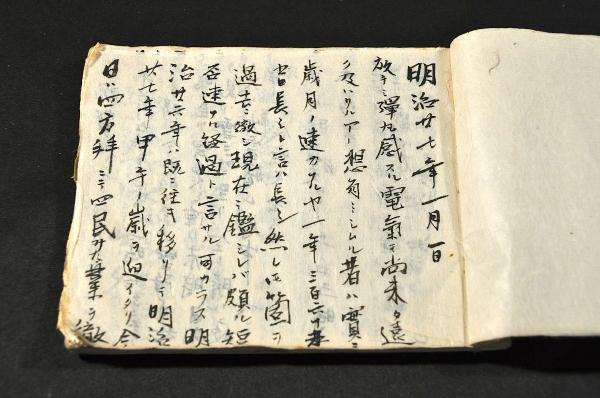 明治廿七年一月一日
放チシ彈丸感スル電氣モ尚未タ遠
ク及ハサルヿヲ想ミシムル者ハ實ニ
歳月ノ速力ナル一年三百六十五
日長シト言ハ長シ然レ𪜈箇ヲ
過去ニ徴シ現在ニ鑑ミレバ頗ル短
否速ナル経過ト言サル可カラス明
治廿六年ハ既ニ往キ移リテ明治
廿七年甲午ノ歳ヲ迎イタリ今
日ハ四方拜ニテ四民皆業ヲ